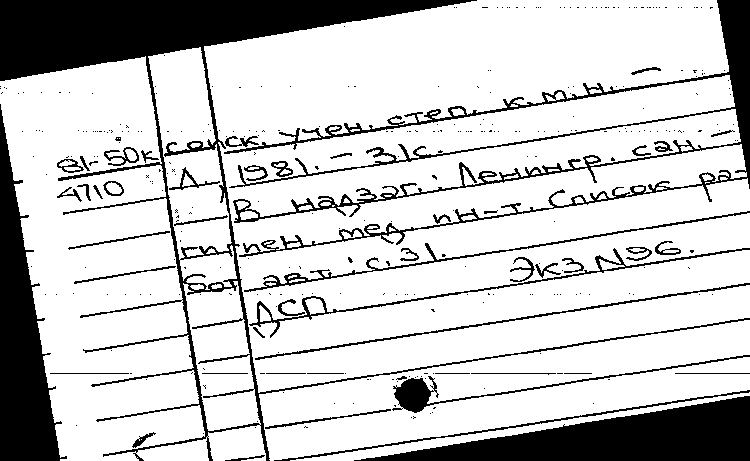 81-50к соиск. учен. степ. к.м.н. –
4710 Л., 1981. – 31с.
В надзаг.: Ленингр. сан.-
гигиен. мед. ин-т. Список ра-
бот авт.: с. 31.
ДСП. Экз. N96.